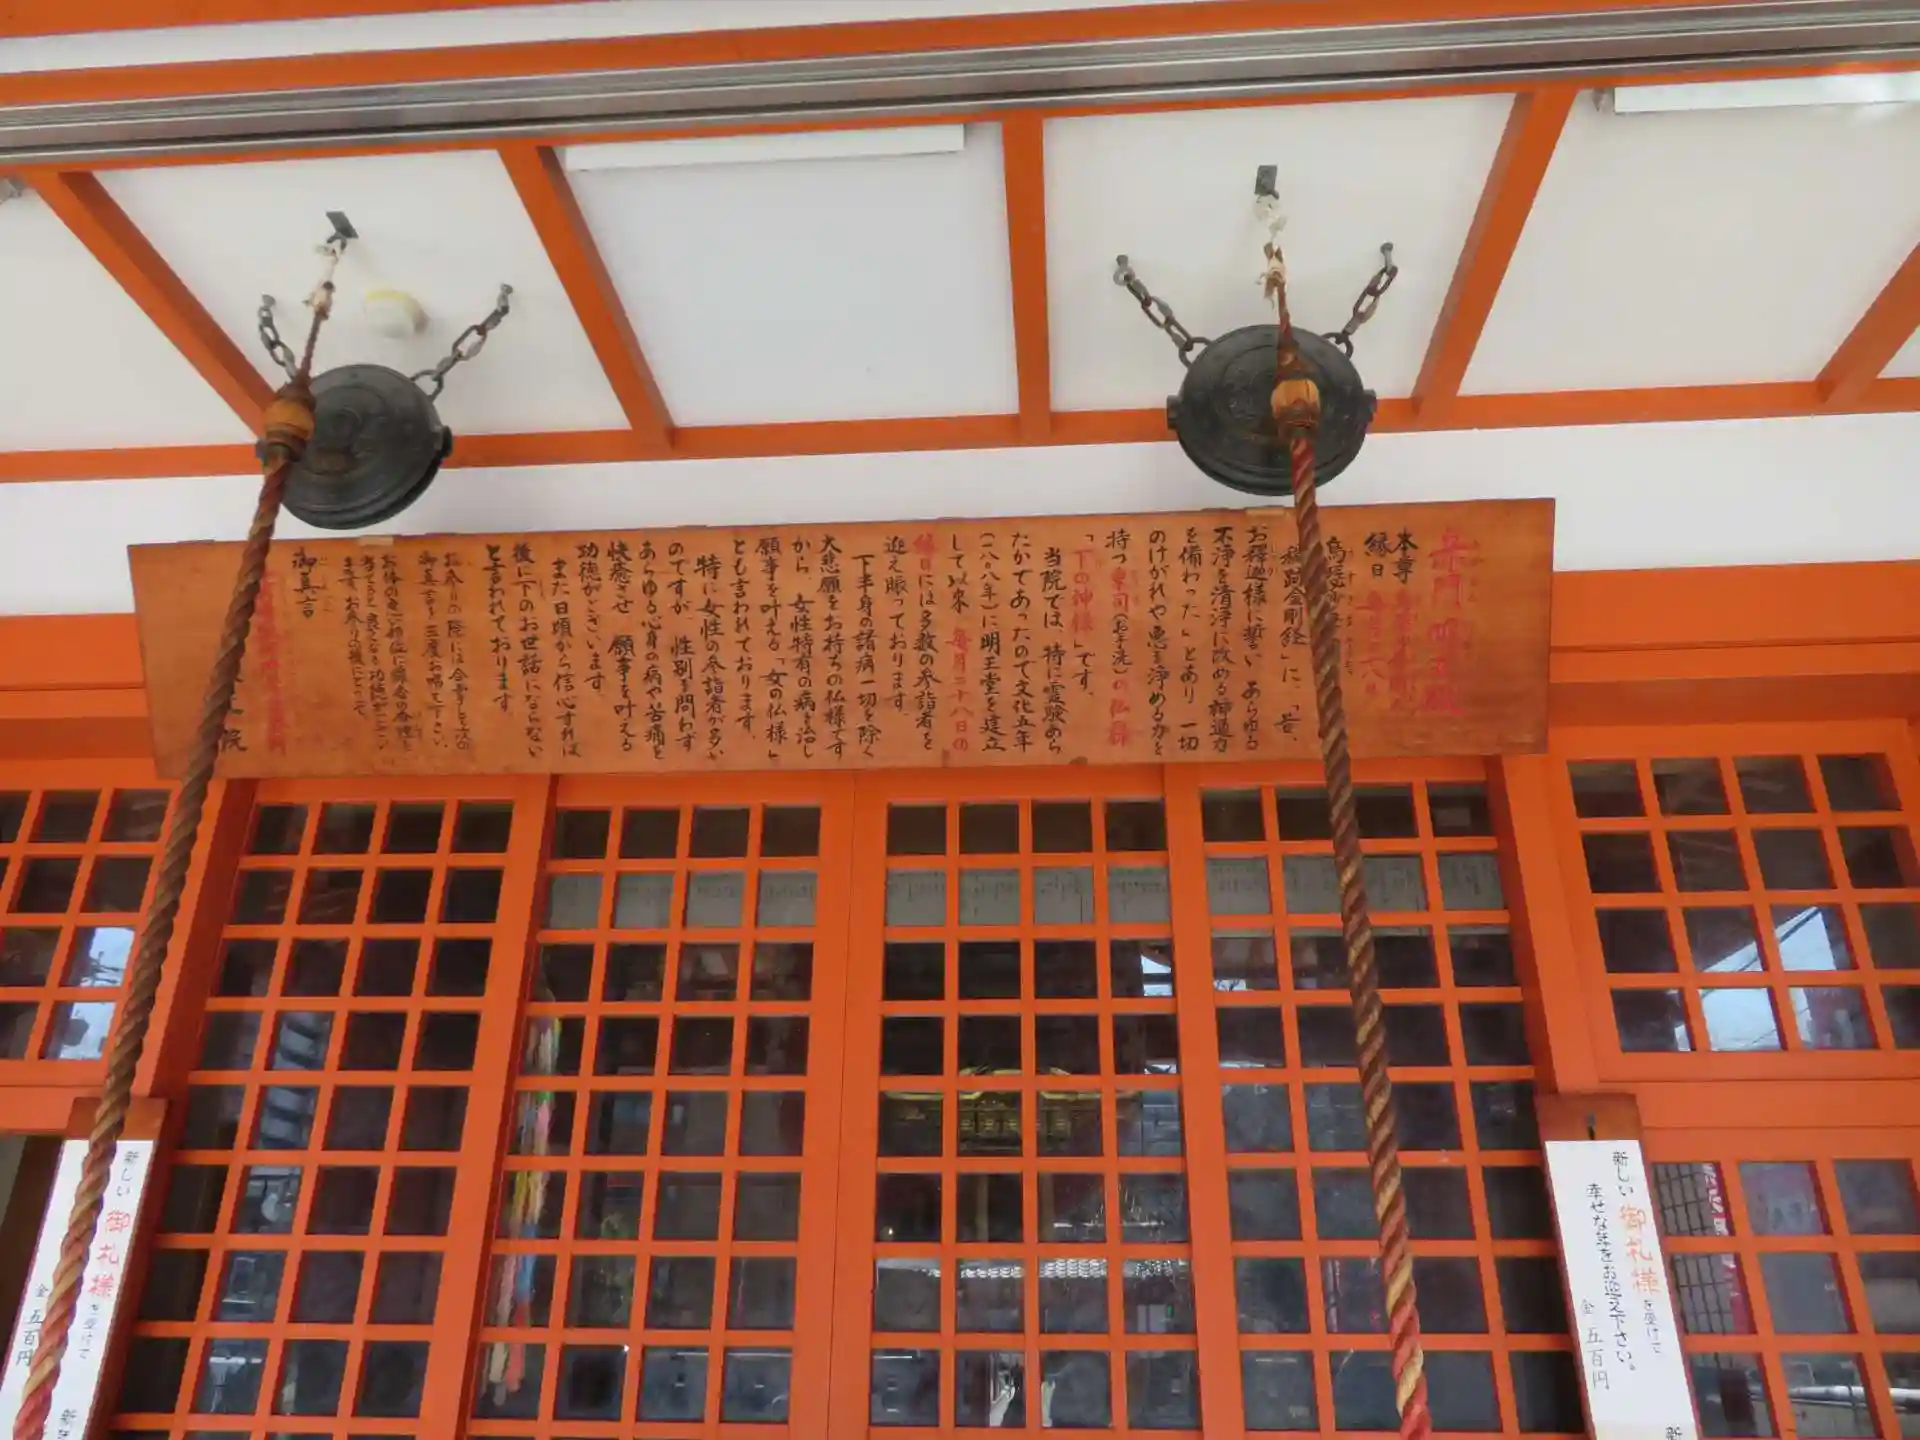 本尊
縁日
穢跡金剛経」に、「昔、
お釋迦様に誓い あらゆる
不浄を清浄に改める神通力
を備わった」とあり 一切
のけがれや悪を浄める力を
持つ東司(お手洗)の仏様
「下の神様」です。
当院では、特に霊験あら
たかであったので文化五年
(一八〇八年)に明王堂を建立
して以来 毎月二十八日の
縁日には多数の参詣者を
迎え賑っております。
下半身の諸病一切を除く
大悲願をお持ちの仏様です
から、女性特有の病を治し
願事を叶える「女の仏様」
とも言われております。
特に女性の参詣者が多い
のですが、性別を問わず
あらゆる心身の病や苦痛を
快癒させ 願事を叶える
功徳がございます。
また日頃から信心すれば
後に下のお世話にならない
と言われております。
お参りの際には合掌し次の
御真言を三度お唱え下さい。
御真言
院
新しい 御札様を受けて
幸せな年をお迎え下さい。
金 五百円
新しい 御札様を受けて
金 五百円